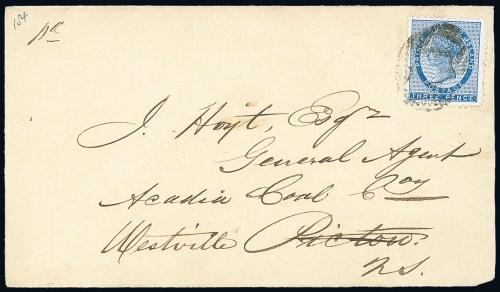 104
pd
J. Hoyt, Esqr
General Agent
Acadia Coal Coy
Westville Pictou.
N.S.
THREE PENCE